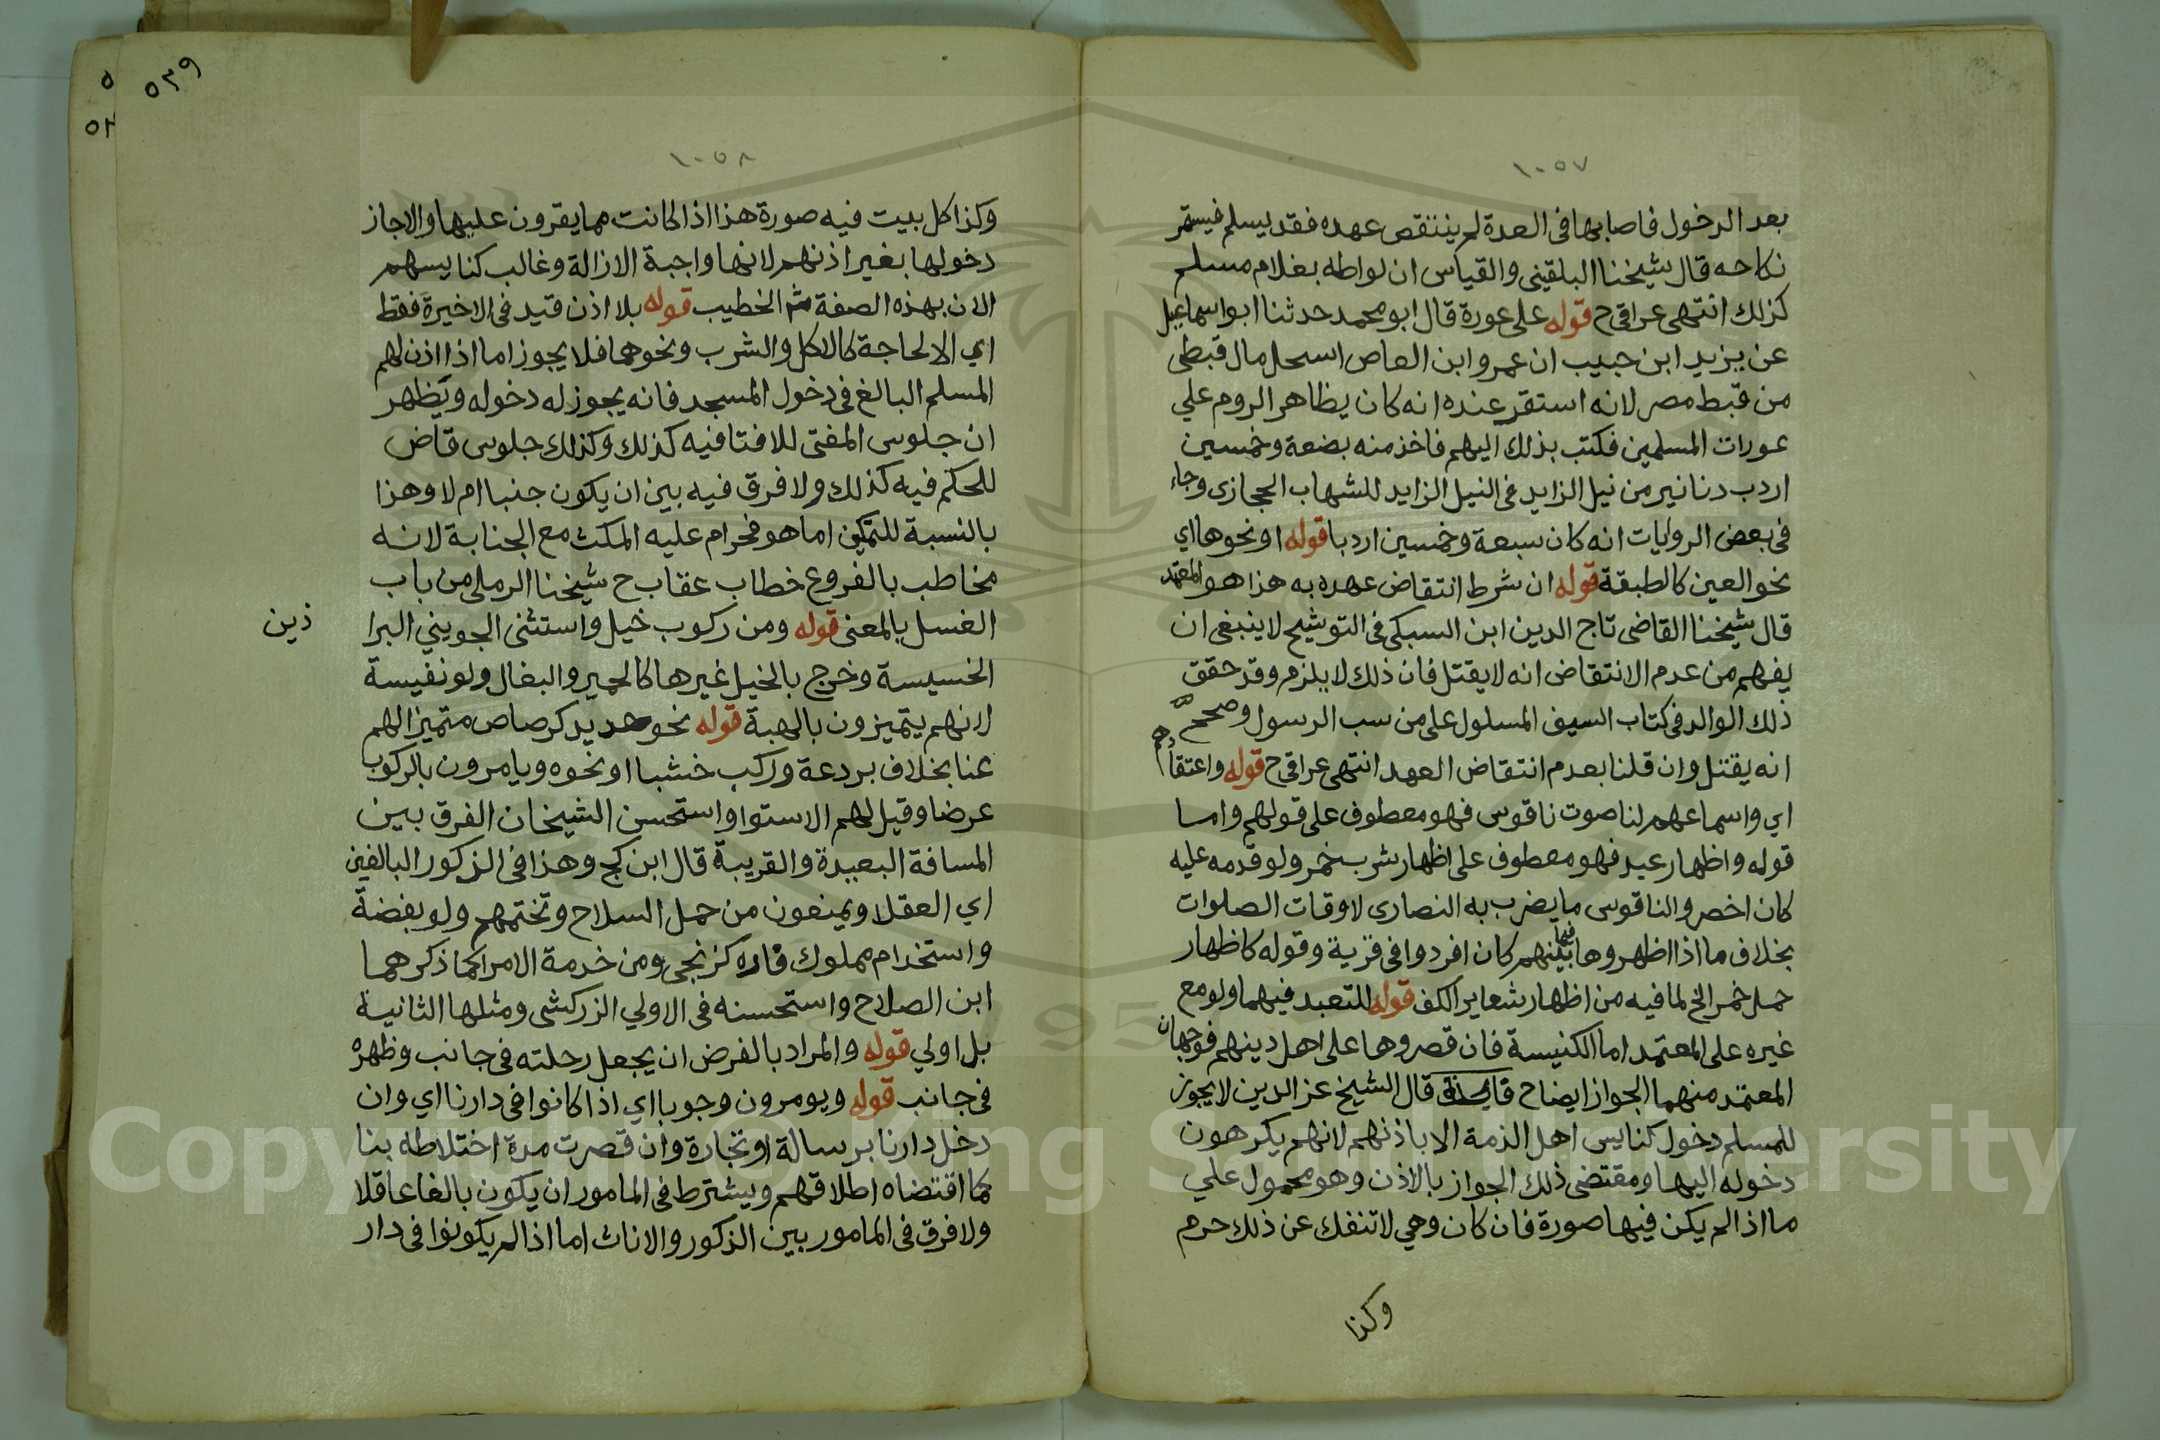 ١٠٥٧
بعد الدخول فاصابها فى العدة لم ينتقض عهده فقد يسلم فيستمر
نكاحه قال شيخنا البلقينى والقياس ان لواطه بغلام مسلم
كذلك انتهى عراقى ح قوله على عورة قال ابو محمد حدثنا ابو اسماعيل
عن يزيد ابن حبيب ان عمرو ابن العاص استحل مال قبطى
من قبط مصر لانه استقر عنده انه كان يظاهر الروم علي
عورات المسلمين فكتب بذلك اليهم فاخذ منه بضعة وخمسين
اردب دنانير من نيل الزايد فى النيل الزايد للشهاب الحجازى وجاء
فى بعض الروايات انه كان سبعة وخمسين اردبا قوله او نحوها اي
نحو العين كالطبقة قوله ان شرط انتقاض عهده به هذا هو المعتمد
قال شيخنا القاضى تاج الدين ابن السبكى فى التوشيح لا ينبغى ان
يفهم من عدم الانتقاض انه لا يقتل فان ذلك لا يلزم وقد حقق
ذلك الوالد فى كتاب السيف المسلول على من سب الرسول وصحح
انه يقتل وان قلنا بعدم انتقاض العهد انتهى عراقى ح قوله واعتقادهم
اي واسماعهم لنا صوت ناقوس فهو معطوف على قولهم واما
قوله واظهار عيد فهو معطوف على اظهار شرب خمر ولو قدمه عليه
كان اخصر والناقوس ما يضرب به النصارى لاوقات الصلوات
بخلاف ما اذا اظهروها فيما بينهم كان افردوا فى قرية وقوله كاظهار
حمل خمر الخ لما فيه من اظهار شعاير الكف قوله للتعبد فيهما ولو مع
غيره على المعتمد اما الكنيسة فان قصروها على اهل دينهم فوجهان
المعتمد منهما الجواز ايضاح فايدة قال الشيخ عز الدين لا يجوز
للمسلم دخول كنايس اهل الذمة الا باذنهم لانهم يكرهون
دخوله اليها ومقتضى ذلك الجواز بالاذن وهو محمول علي
ما اذا لم يكن فيها صورة فان كان وهي لا تنفك عن ذلك حرم
وكذا
٥٣٩
١٠٥٨
وكذا كل بيت فيه صورة هذا اذا كانت مما يقرون عليها والا جاز
دخولها بغير اذنهم لانها واجبة الازالة وغالب كنايسهم
الان بهذه الصفة الخطيب قوله بلا اذن قيد فى الاخيرة فقط
اي الا لحاجة كالاكل والشرب ونحوهما فلا يجوز اما اذا اذن لهم
المسلم البالغ فى دخول المسجد فانه يجوز له دخوله ويظهر
ان جلوس المفتى للافتا فيه كذلك وكذلك جلوس قاض
للحكم فيه كذلك ولا فرق فيه بين ان يكون جنبا ام لا وهذا
بالنسبة للتمكين اما هو فحرام عليه المكث مع الجنابة لانه
مخاطب بالفروع خطاب عقاب ح شيخنا الرملى من باب
الغسل بالمعنى قوله ومن ركوب خيل واستثنى الجويني البرا
ذين
الخسيسة وخرج بالخيل غيرها كالحمير والبغال ولو نفيسة
لانهم يتميزون بالهيبة قوله نحو حديد كرصاص متميزا لهم
عنا بخلاف بردعة وركب خشبا او نحوه ويامرون بالركوب
عرضا وقيل لهم الاستوا واستحسن الشيخان الفرق بين
المسافة البعيدة والقريبة قال ابن كج وهذا فى الذكور البالغين
اي العقلا ويمنعون من حمل السلاح وتختمهم ولو بفضة
واستخدام مملوك فاره كزنجى ومن خدمة الامرا كما ذكرهما
ابن الصلاح واستحسنه فى الاولي الزركشى ومثلها الثانية
بل اولي قوله والمراد بالفرض ان يجعل رحلته فى جانب وظهره
فى جانب قوله ويومرون وجوبا اي اذا كانوا فى دارنا اي وان
دخل دارنا برسالة او تجارة وان قصرت مدة اختلاطه بنا
كما اقتضاه اطلاقهم ويشترط فى المامور ان يكون بالغا عاقلا
ولا فرق فى المامور بين الذكور والاناث اما اذا لم يكونوا فى دار